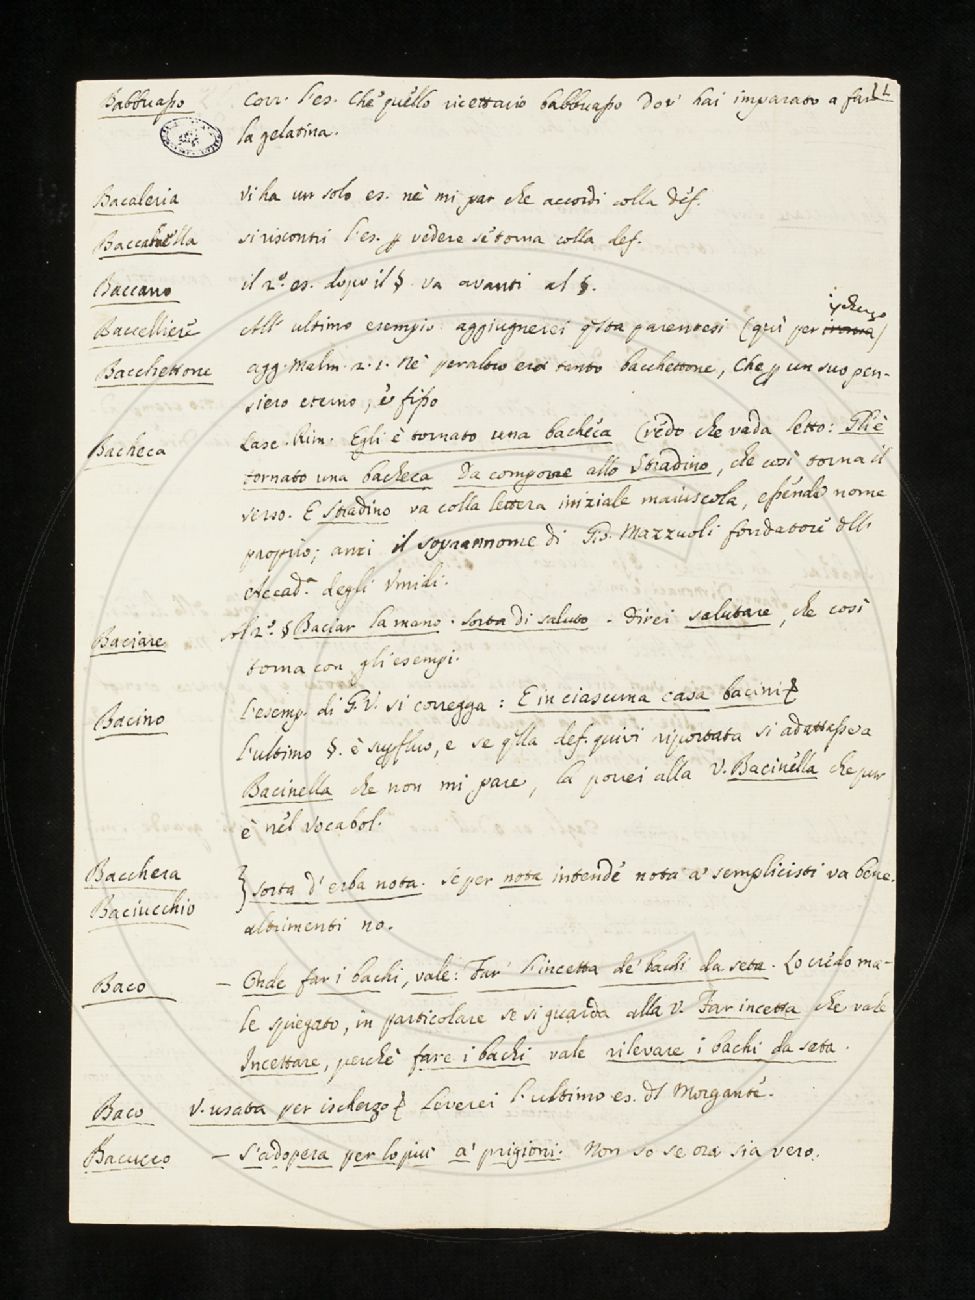 11
Babbuasso Corr. l'es. Che quello ricettario babbuasso dov' hai imparato a far
la gelatina.
Bacaleria Vi ha un solo es. nè mi par che accordi colla def.
si riscontri l'es. p vedere se torna colla def.
Baccano il 2.° es. dopo il §. va avanti al §.
ischerzo
Baccelliere All' ultimo esempio aggiugnerei qsta parentesi (quì per )
Bacchettone agg. Malm. 2. 1. Nè peraltro era tanto bacchettone, Che p un suo pen-
siero eterno, e fisso
Bacheca Lasc. Rim. Egli è tornato una bacheca Credo che vada letto: Gli è
tornato una bacheca da comporre allo Stradino, che così torna il
verso. E Stradino va colla lettera iniziale maiuscola, essendo nome
proprio; anzi il soprannome di Gio. Mazzuoli fondatore dlla
Accad.ª degli Umidi.
Baciare Al 2.° § Baciar la mano. sorta di saluto. direi salutare, che così
torna con gli esempi.
Bacino l'esemp. di G.V. si corregga: E in ciascuna casa bacini
l'ultimo §. è supfluo, e se qlla def. quivi riportata si adattasse a
Bacinella che non mi pare, la porrei alla V. Bacinella che pur
è nel Vocabol.
Bacchera
Baciucchio } sorta d' erba nota. se per nota intende nota a' semplicisti va bene.
altrimenti no.
Baco — Onde far i bachi, vale: Far l'incetta de' bachi da seta. Lo credo ma-
le spiegato, in particolare se si guarda alla V. Far incetta che vale
Incettare, perchè fare i bachi vale rilevare i bachi da seta.
Baco V. usata per ischerzo Leverei l'ultimo es. dl Morgante.
Bacucco — s'adopera per lo più a' prigioni. Non so se ora sia vero.